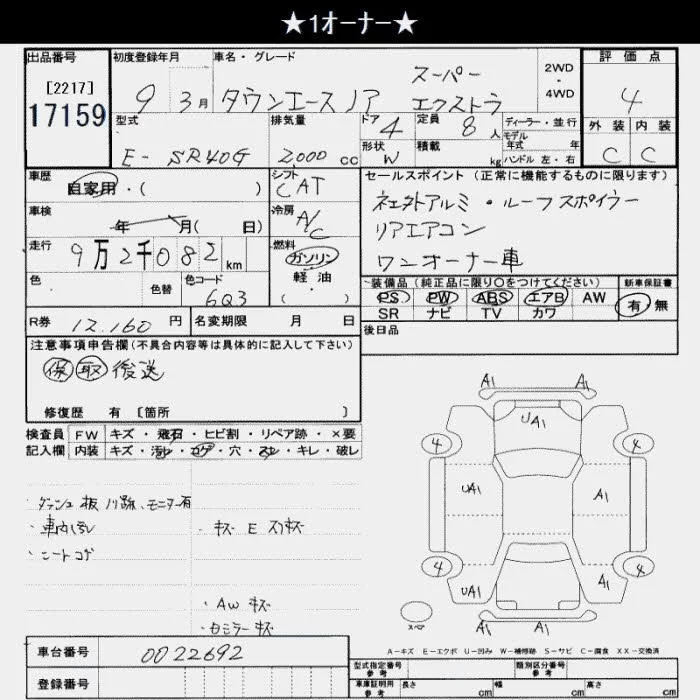 ★1オーナー★
出品番号
[2217]
17159
初度登録年月
9 3月
車名・グレード
タウンエースノア
スーパー
エクストラ
2WD
・
4WD
評価点
4
外装 内装
C C
型式
E- SR40G
排気量
2000 cc
ドア 4
形状 W
定員 8人
積載 kg
ディーラー・並行
モデル
年式 年
ハンドル 左・右
車歴
自家用・( )
シフト
CAT
車検
年 月( 日)
冷房
A/C
走行
9万2千082 km
燃料
ガソリン
軽油
( )
色
色替
色コード
6Q3
R券 12,160 円
名変期限 月 日
セールスポイント(正常に機能するものに限ります)
アルミ・ルーフスポイラー
リアエアコン
ワンオーナー車
装備品(純正品に限り○をつけてください)
PS PW ABS エアB AW
SR ナビ TV カワ
新車保証書
有・無
後日品
注意事項申告欄(不具合内容等は具体的に記入して下さい)
保 取 後送
修復歴 有 [箇所 ]
検査員
記入欄
FW キズ・飛石・ヒビ割・リペア跡・×要
内装 キズ・汚レ・コゲ・穴・スレ・キレ・破レ
・ダッシュ板
モニター有
・車内汚れ
・シートコゲ
・キズ E スリキズ
・AW キズ
・ミラー キズ
A1 A1
UA1
4 4
UA1 A1
4 4
UA1 A1
A1 A1
スペア
A-キズ E-エクボ U-凹み W-補修跡 S-サビ C-腐食 XX-交換済
車台番号 0022692
登録番号
型式指定番号
参考
類別区分番号
参考
車庫証明用
参考
長さ cm 幅 cm 高さ cm